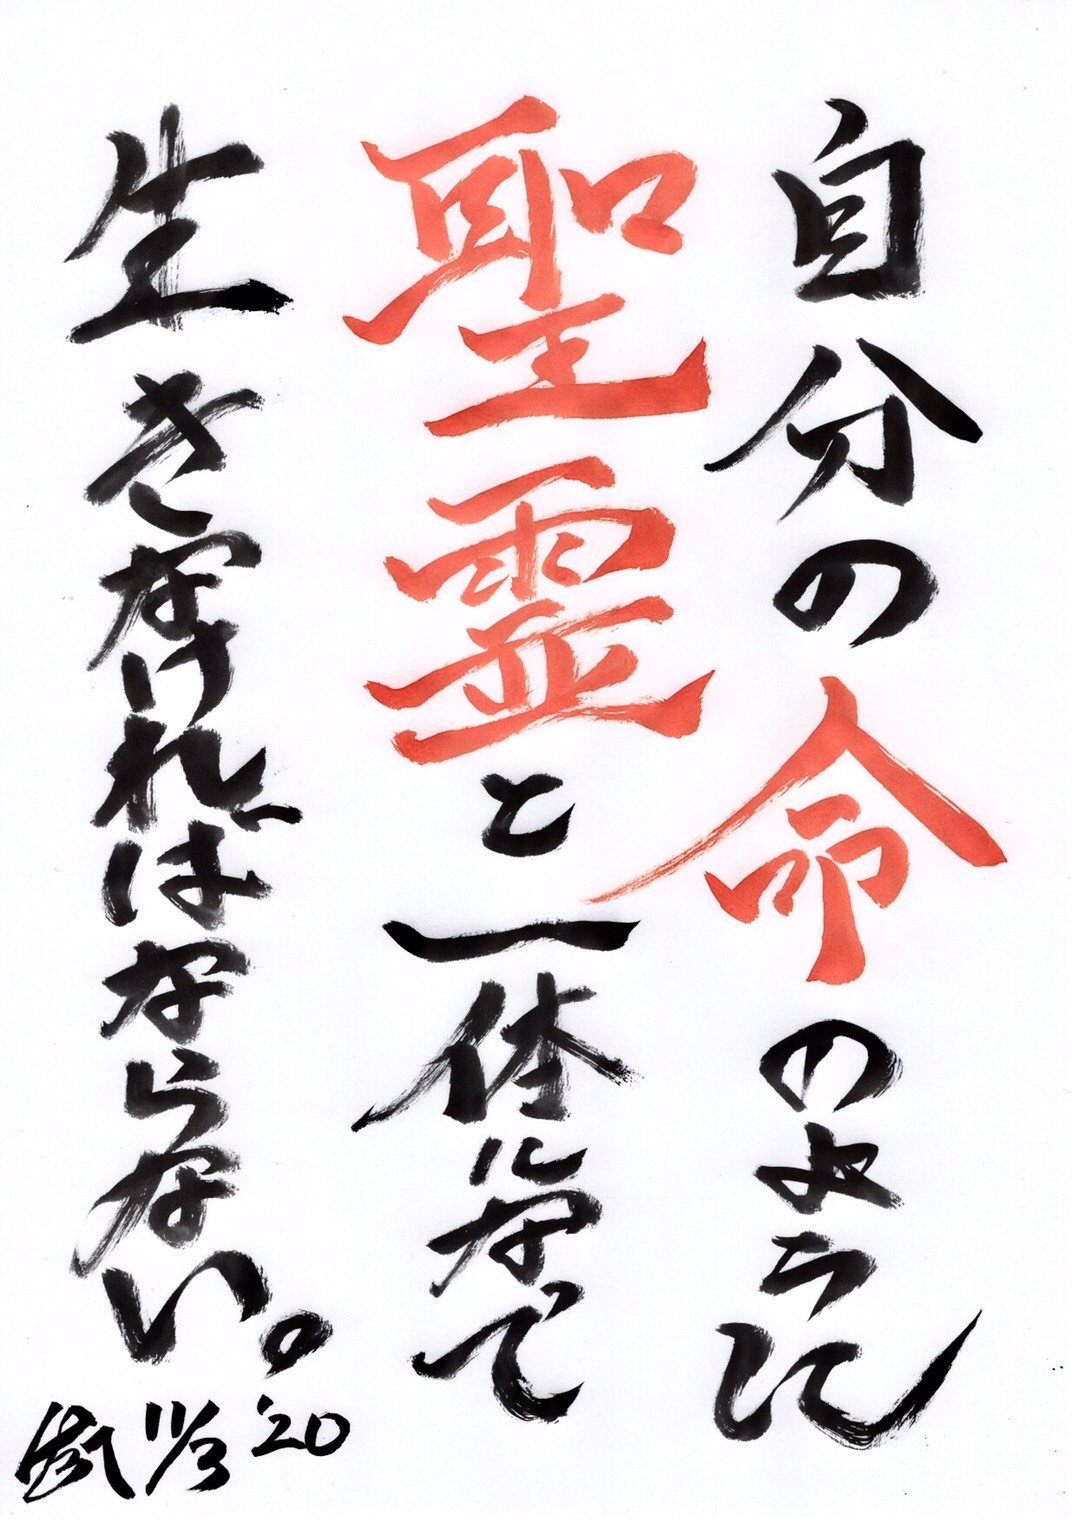 自分の命のように
聖霊と一体になって
生きなければならない。
11/3 '20